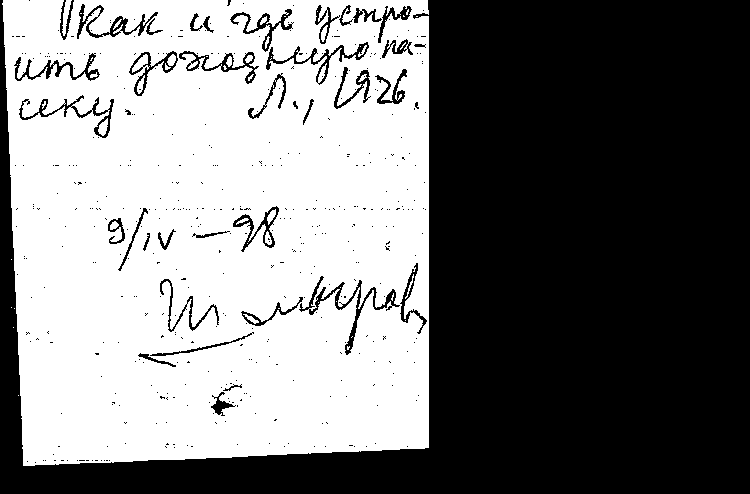 Как и где устро-
ить доходную па-
секу. Л., 1926.
9/IV — 98